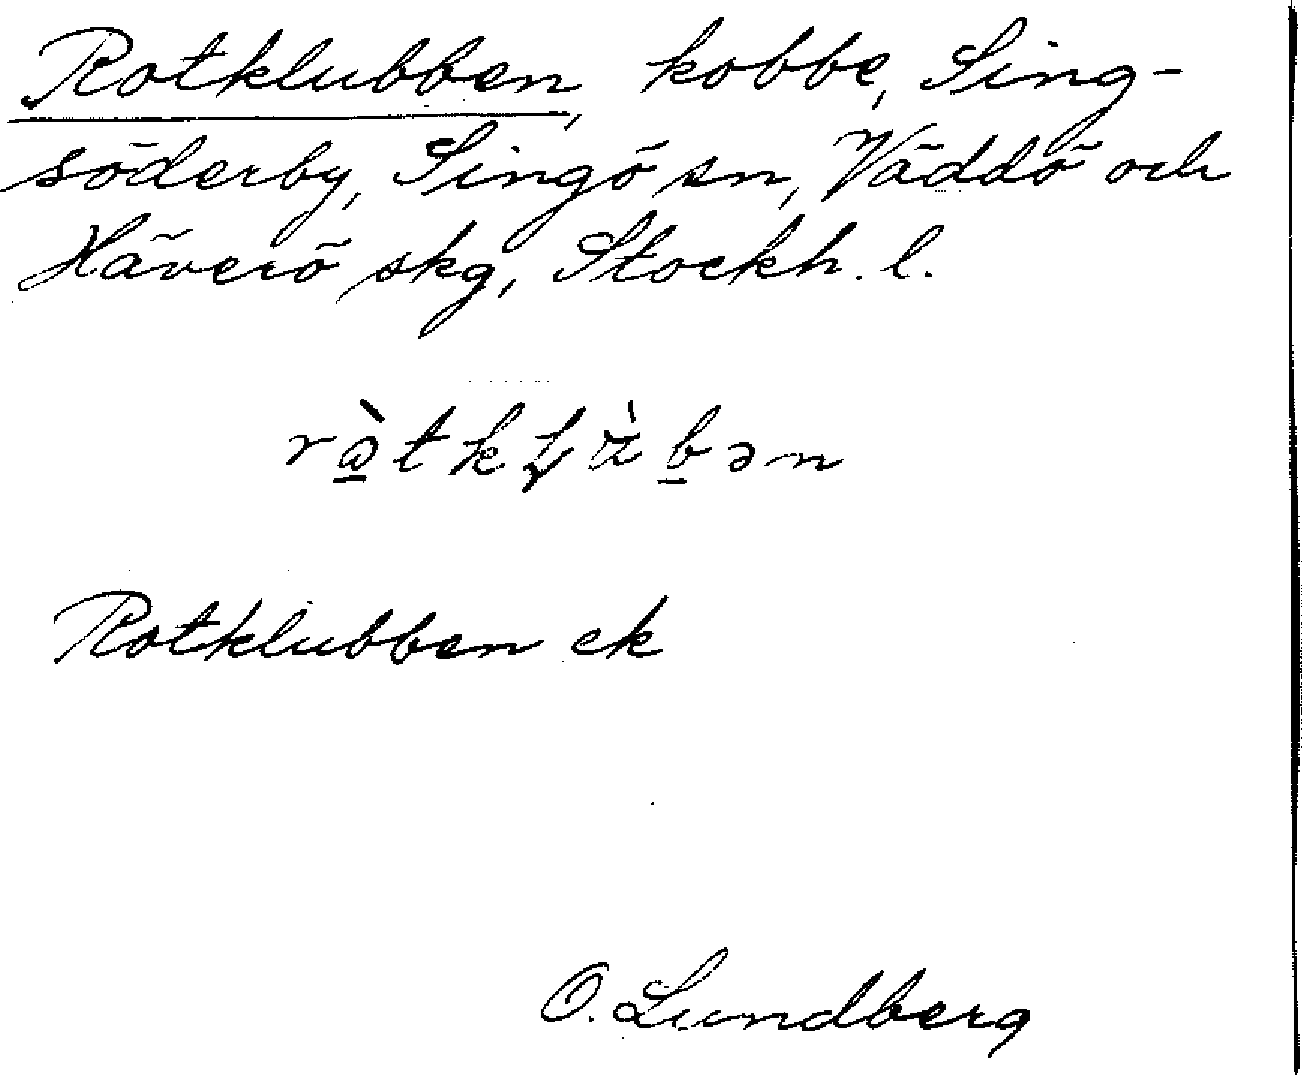 Rotklubben, kobbe, Sing-
söderby, Singö sn, Väddö och
Häverö skg, Stockh. l.
Rotklubben ek
O. Lundberg